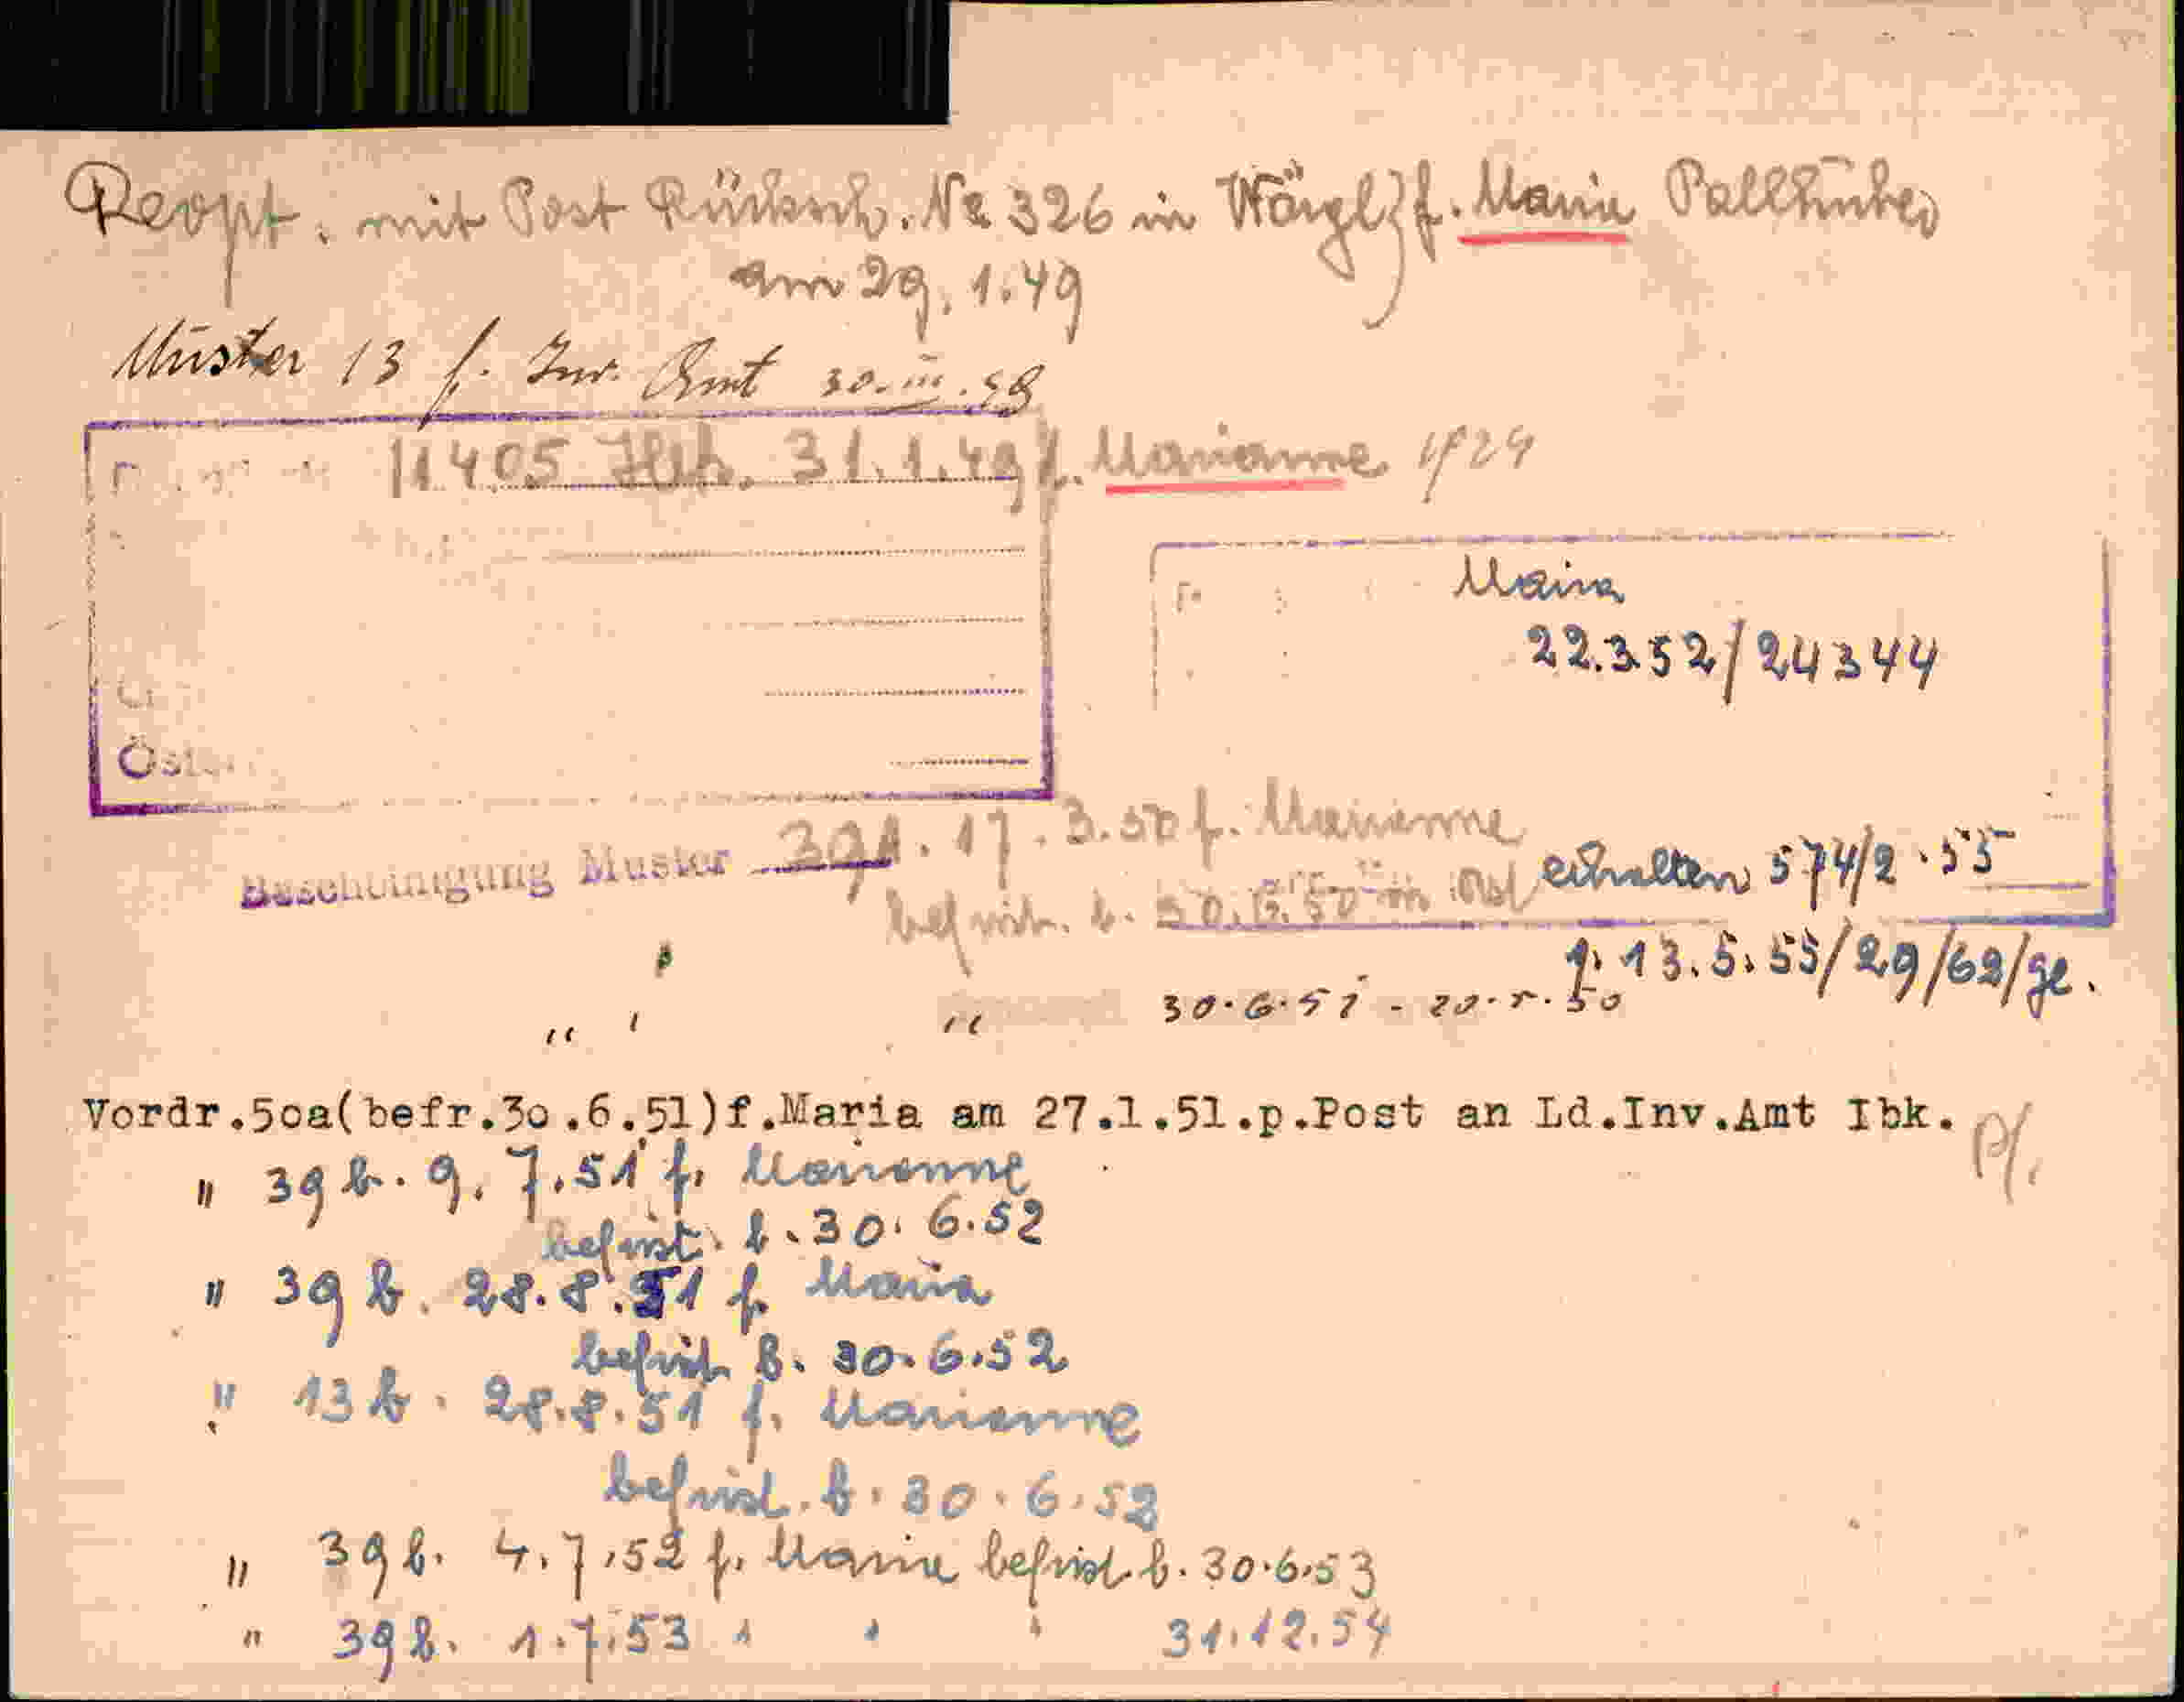 Reopt. mit Post Rücksch. No 326 in Wörgl f. Maria
am 29.1.49
Muster 13 f. Inv. Amt 30.III.
11405 31.1.49 f. Marianne 1924
Maria
22.352/24344
Öster
Bescheinigung Muster 39A. 17.3.50 f. Marianne
befrist. b. 30.6.50
erhalten 574/2.55
13.5.55/29/62/ge.
" " 30.6.51 -
Vordr.50a(befr.30.6.51)f.Maria am 27.1.51.p.Post an Ld.Inv.Amt Ibk.
" 39 b. 9.7.51 f. Marianne
befrist. b. 30.6.52
" 39 b. 28.8.51 f. Maria
befrist. b. 30.6.52
" 13 b. 28.8.51 f. Marianne
befrist. b. 30.6.52
" 39 b. 4.7.52 f. Maria befrist. b. 30.6.53
" 39 b. 1.7.53 " " " 31.12.54